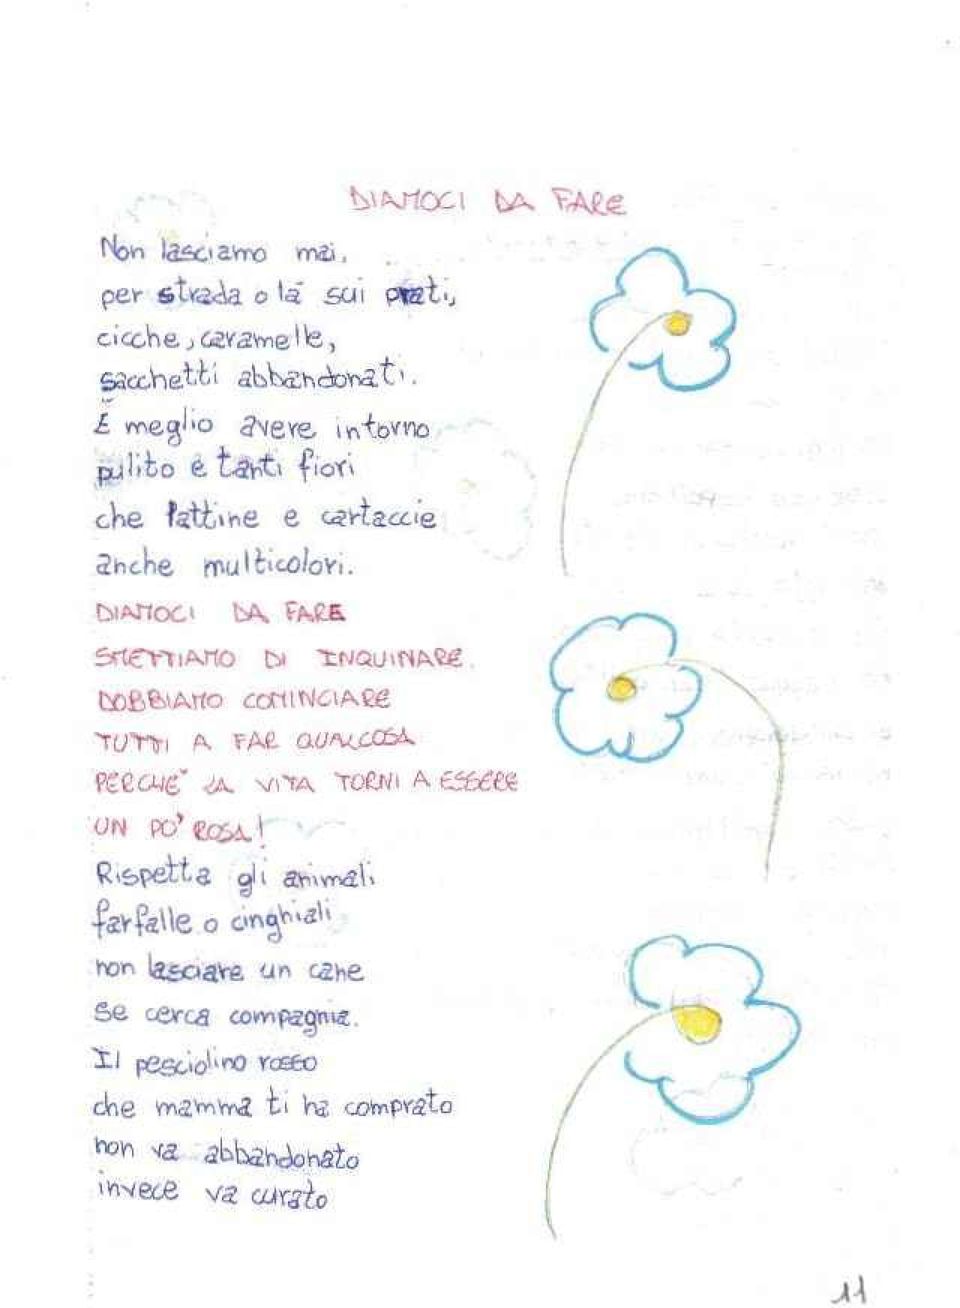 DIAMOCI DA FARE
Non lasciamo mai,
per strada o là sui prati,
cicche, caramelle,
sacchetti abbandonati.
È meglio avere intorno
pulito e tanti fiori
che lattine e cartaccie
anche multicolori.
DIAMOCI DA FARE
SMETTIAMO DI INQUINARE.
DOBBIAMO COMINCIARE
TUTTI A FAR QUALCOSA
PERCHÈ LA VITA TORNI A ESSERE
UN PO' ROSA!
Rispetta gli animali
farfalle o cinghiali
non lasciare un cane
se cerca compagnia.
Il pesciolino rosso
che mamma ti ha comprato
non va abbandonato
invece va curato
11